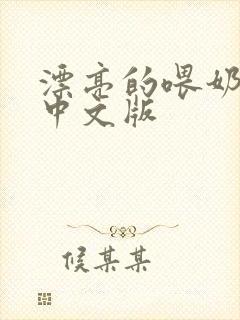 漂亮的喂奶
中文版
候某某